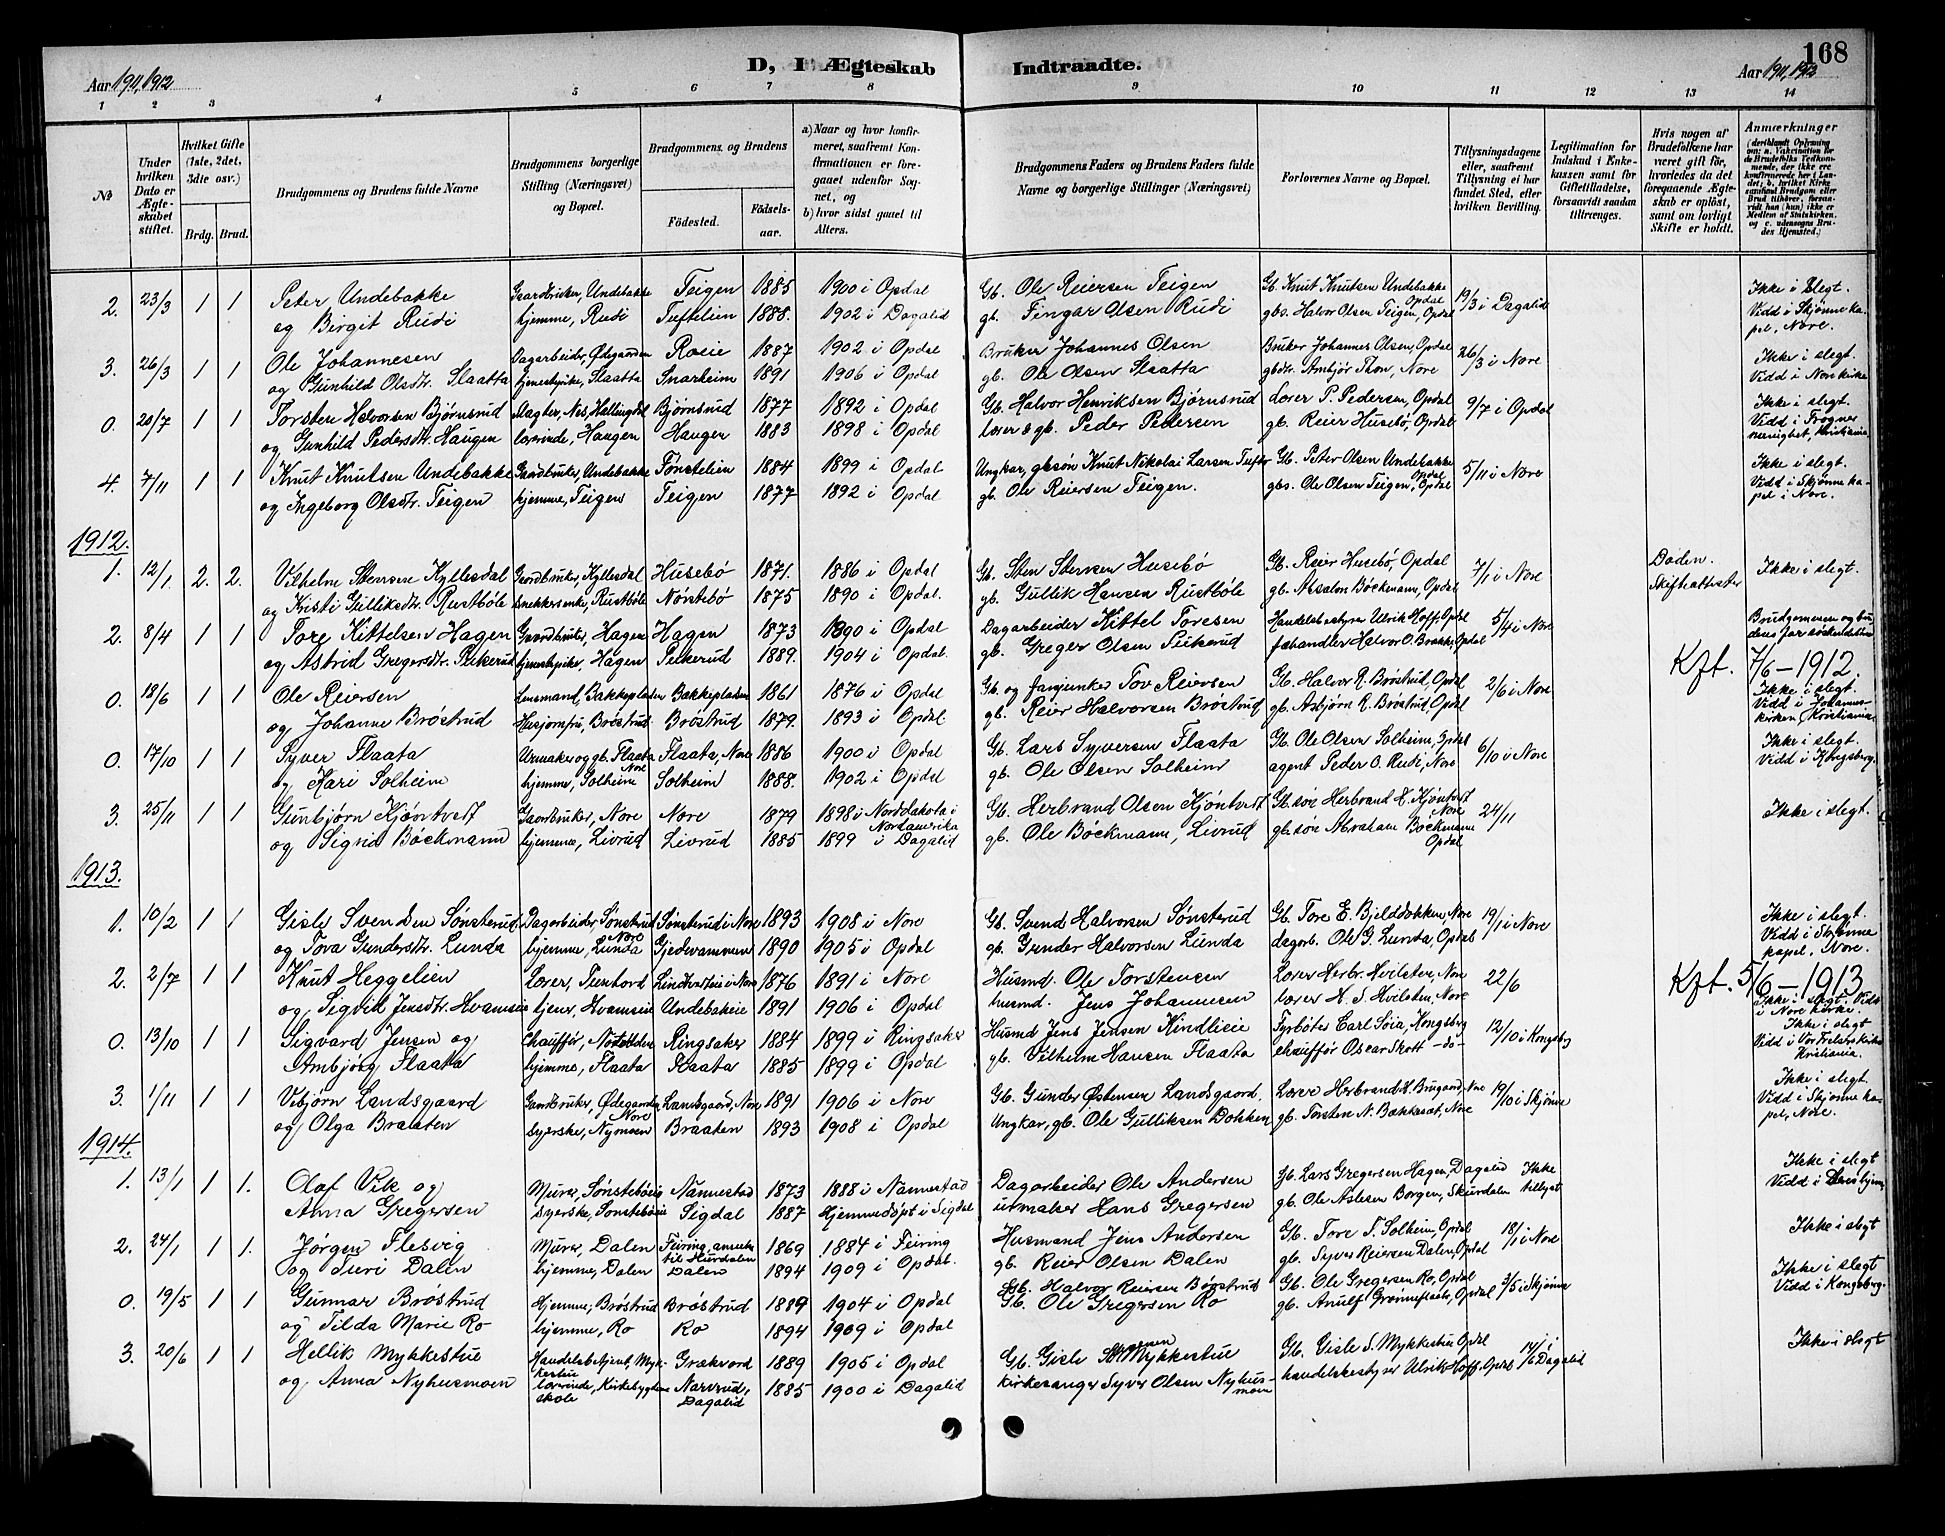 168
D, I Ægteskab Indtraadte.
Aar 1911, 1912
Aar 1911, 1912
1 2 3 4 5 6 7 8 9 10 11 12 13 14
No
Under hvilken Dato er Ægteskabet stiftet.
Hvilket Gifte (1ste, 2det, 3die osv.)
Brdg. Brud.
Brudgommens og Brudens fulde Navne
Brudgommens borgerlige Stilling (Næringsvei) og Bopæl.
Brudgommens og Brudens
Födested. Födselsaar.
a) Naar og hvor konfirmeret, saafremt Konfirmationen er foregaaet udenfor Sognet, og
b) hvor sidst gaaet til Alters.
Brudgommens Faders og Brudens Faders fulde Navne og borgerlige Stillinger (Næringsvei)
Forlovernes Navne og Bopæl.
Tillysningsdagene eller, saafremt Tillysning ei har fundet Sted, efter hvilken Bevilling.
Legitimation for Indskud i Enkekassen samt for Giftetilladelse, forsaavidt saadan tiltrænges.
Hvis nogen af Brudefolkene har været gift för, hvorledes da det foregaaende Ægteskab er oplöst, samt om lovligt Skifte er holdt.
Anmærkninger
2. 23/3 1 1 Peter Undebakke Gaardbruker, Undebakke Teigen 1885 1900 i Opdal Gb. Ole Reiersen Teigen Gb. Knut Knutsen Undebakke Opdal 19/3 i Dagalid Ikke i slegt.
og Birgit Rudi hjemme, Rudi Tuftelien 1888. 1902 i Dagalid gb. Fingar Olsen Rudi gbs. Halvor Olsen Teigen, Opdal Vidd i Skjönne kapel, Nore.
3. 26/3 1 1 Ole Johannesen Dagarbeider, Ødegaarden Roeie 1887 1902 i Opdal Bruker Johannes Olsen Bruker Johannes Olsen, Opdal 26/3 i Nore Ikke i slegt.
og Gunhild Olsdtr. Slaatta tjenestpike, Slaatta Snarheim 1891 1906 i Opdal gb. Ole Olsen Slaatta gbdr. Ambjör Thon, Nore Vidd i Nore kirke
0. 20/7 1 1 Torsten Halvorsen Bjørnsrud Slagter, Nes, Hallingdal Bjørnsrud 1877 1892 i Opdal Gb. Halvor Henriksen Bjørnsrud Lærer P. Pedersen, Opdal 9/7 i Opdal Ikke i slegt.
og Gunhild Pedersdtr. Haugen lærerinde, Haugen Haugen 1883 1898 i Opdal lærer & gb. Peder Pedersen gb. Reier Husebö, Opdal Vidd i Frogner menighet, Kristiania
4. 7/11 1 1 Knut Knutsen Undebakke Gaardbruker, Undebakke Tønstelien 1884 1899 i Opdal Ungkar, gbsøn Knut Nikolai Larsen Tufte Gb. Peter Olsen Undebakke Opdal 5/11 i Nore Ikke i slegt.
og Ingeborg Olsdtr. Teigen hjemme, Teigen Teigen 1877 1892 i Opdal gb. Ole Reiersen Teigen. gbs. Ole Olsen Teigen, Opdal Vidd i Skjönne kapel i Nore.
1912.
1. 12/1. 2. 2. Vilhelm Stensen Kyllesdal Gaardbruker, Kyllesdal Husebö 1871. 1886 i Opdal Gb. Sten Stensen Husebö Gb. Reier Husebö, Opdal 7/1 i Nore Døden. Ikke i slegt.
og Kristi Gulliksdtr. Rustböle snekkerenke, Rustböle Nörstebö 1875 1890 i Opdal. gb. Gullik Hansen Rustböle gb. Absalon Böckmann, Opdal Skifteattester
2. 8/4 1 1 Tore Kittelsen Hagen Gaardbruker, Hagen Hagen 1873 1890 i Opdal Dagarbeider Kittel Toresen Handelsbestyrer Ulrik Hoff, Opdal 5/4 i Nore
og Astrid Gregersdtr. Peikerud tjenestpike, Hagen Peikerud 1889. 1904 i Opdal. gb. Greger Olsen Peikerud fæhandler Halvor O. Brakke, Opdal Kzt. 7/6 - 1912.
0. 18/6 1 1 Ole Reiersen Lensmand, Bakkepladsen Bakkepladsen 1861 1876 i Opdal Gb. og fanjunker Tov Reiersen Gb. Halvor R. Bröstrud, Opdal 2/6 i Nore Ikke i slegt.
og Johanne Bröstrud Husjomfru, Bröstrud Bröstrud 1879. 1893 i Opdal. gb. Reier Halvorsen Bröstrud gb. Asbjörn R. Bröstrud, Opdal Vidd i Johanneskirken, Kristiania
0. 17/10 1 1 Syver Flaata Urmaker og gb. Flaata Nore Flaata, Nore 1886 1900 i Opdal Gb. Lars Syversen Flaata Gb. Ole Olsen Solheim, Opdal 6/10 i Nore Ikke i slegt.
og Kari Solheim hjemme, Solheim Solheim 1888. 1902 i Opdal gb. Ole Olsen Solheim agent Peder O. Rudi, Nore Vidd i Kongsberg.
3. 25/11 1 1 Gunbjörn Kjöntvedt Gaardbruker, Nore Nore 1879 1898 i Norddakota i Nordamerika Gb. Herbrand Olsen Kjöntvedt Gb. søn Herbrand H. Kjöntvedt Nore 24/11 Ikke i slegt.
og Sigrid Böckmann hjemme, Livrud Livrud 1885 1899 i Dagalid gb. Ole Böckmann, Livrud gb. søn Abraham Böckmann Opdal
1913.
1. 10/2 1 1 Gisle Svendsen Sönsterud Dagarbeider, Sönsterud Nore Sönsterud i Nore 1893 1908 i Nore Gb. Svend Halvorsen Sönsterud Gb. Tore E. Bjelddokken, Nore 19/1 i Nore Ikke i slegt.
og Tora Gundersdtr. Lunda hjemme, Lunda Gjedvammen 1890 1905 i Opdal gb. Gunder Halvorsen Lunda dagarb. Ole G. Lunda, Opdal Vidd i Skjønne kapel, Nore.
2. 2/7 1 1 Knut Heggelien Lærer 1876 1891 i Nore Husmd. Ole Torstensen Lærer Herbr. Hvilsten, Nore 22/6 Kzt. 5/6 - 1913
og Sigrid Jensdtr. Hvamseie hjem., Hvamseie Undebakeie 1891 1906 i Opdal husmd. Jens Johannesen lærer H. S. Hvilsten, Nore Ikke i slegt. Vidd i Nore kirke.
0. 13/10 1 1 Sigvard Jensen og Chauffør, Notodden Ringsaker 1884 1899 i Ringsaker Husmd Jens Jensen Kindlieie Fyrböter Carl Søia, Kongsberg 12/10 i Kongsberg Ikke i slegt
Ambjörg Flaata hjemme, Flaata Flaata 1885 1899 i Opdal gb. Vilhelm Hansen Flaata chauffør Oscar Skott - do - Vidd i Vor Frelsers kirke Kristiania.
3. 1/11 1 1 Vebjörn Landsgaard Gaardbruker, Ødegaarden Nore Landsgaard, Nore 1891 1906 i Nore Gb. Gunder Østensen Landsgaard, Lærer Herbrand H. Brugaard, Nore 19/10 i Skjönne Ikke i slegt.
og Olga Braaten syerske, Nymoen Braaten 1893 1908 i Opdal Ungkar, gb. Ole Gulliksen Dokken gb. Torsten N. Bakkesat, Nore Vidd i Skjönne kapel, Nore.
1914.
1. 13/1 1 1. Olaf Vik og Murer, Sönsteböeie Nannestad 1873 1888 i Nannestad Dagarbeider Ole Andersen Gb. Lars Gregersen Hagen, Dagalid Ikke tillyst Ikke i slegt
Anna Gregersen syerske, Sonsteböeie Sigdal 1887 Hjemmedöpt i Sigdal urmaker Hans Gregersen gb. Ole Aslesen Borgen, Skurdalen
2. 24/1 1 1. Jørgen Flesvig Murer, Dalen Feiring, 1869 1884 i Feiring Husmand Jens Andersen Gb. Tore T. Solheim, Opdal 18/1 i Nore Ikke i slegt
og Turi Dalen hjemme, Dalen Dalen 1894 1909 i Opdal. gb. Reier Olsen Dalen gb. Syver Reiersen Dalen, Opdal
0. 19/5 1 1 Gunnar Bröstrud Hjemme, Bröstrud Bröstrud 1889 1904 i Opdal Gb. Halvor Reiersen Bröstrud Gb. Ole Gregersen Ro, Opdal 3/5 i Skjönne Ikke i slegt
og Tilda Marie Ro hjemme, Ro Ro 1894 1909 i Opdal Gb. Ole Gregersen Ro gb. Anulf Grønneflaata, Opdal Vidd i Kongsberg.
3. 20/6 1 1 Hellik Mykkestue Handelsbetjent, Mykkestue Grækvord 1889 1905 i Opdal Gb. Gisle Mykkestue Gb. Gisle S. Mykkestue Opdal 14/6 i Dagalid Ikke i slegt
og Anna Nyhusmoen lærerinde, Kirkebygdens skole Narvrud, Dagalid 1885 1900 i Dagalid kirkesanger Syver Olsen Nyhusmoen handelsbestyrer Ulrik Hoff, Opdal